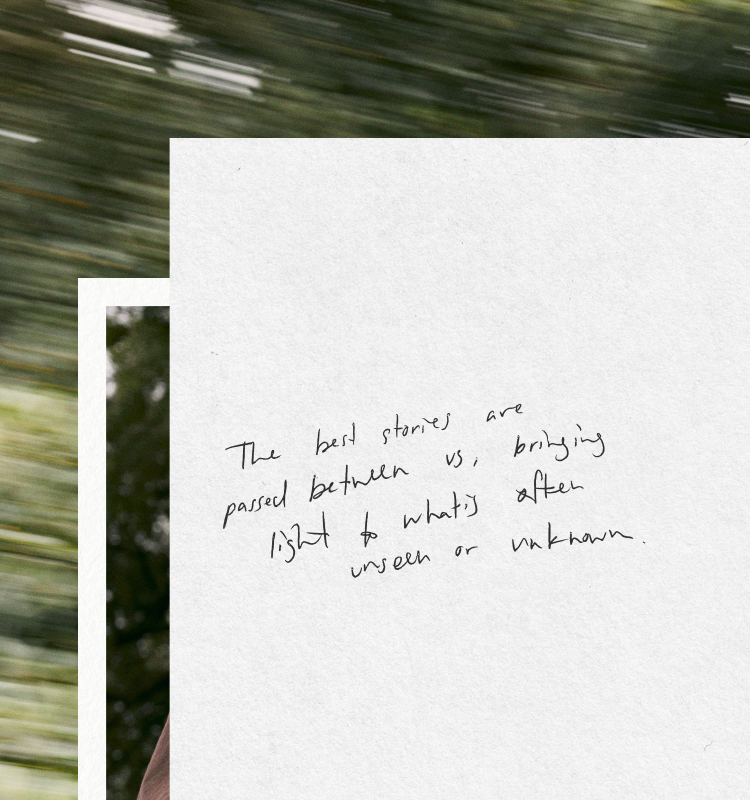 The best stories are
passed between us, bringing
light to what is often
unseen or unknown.